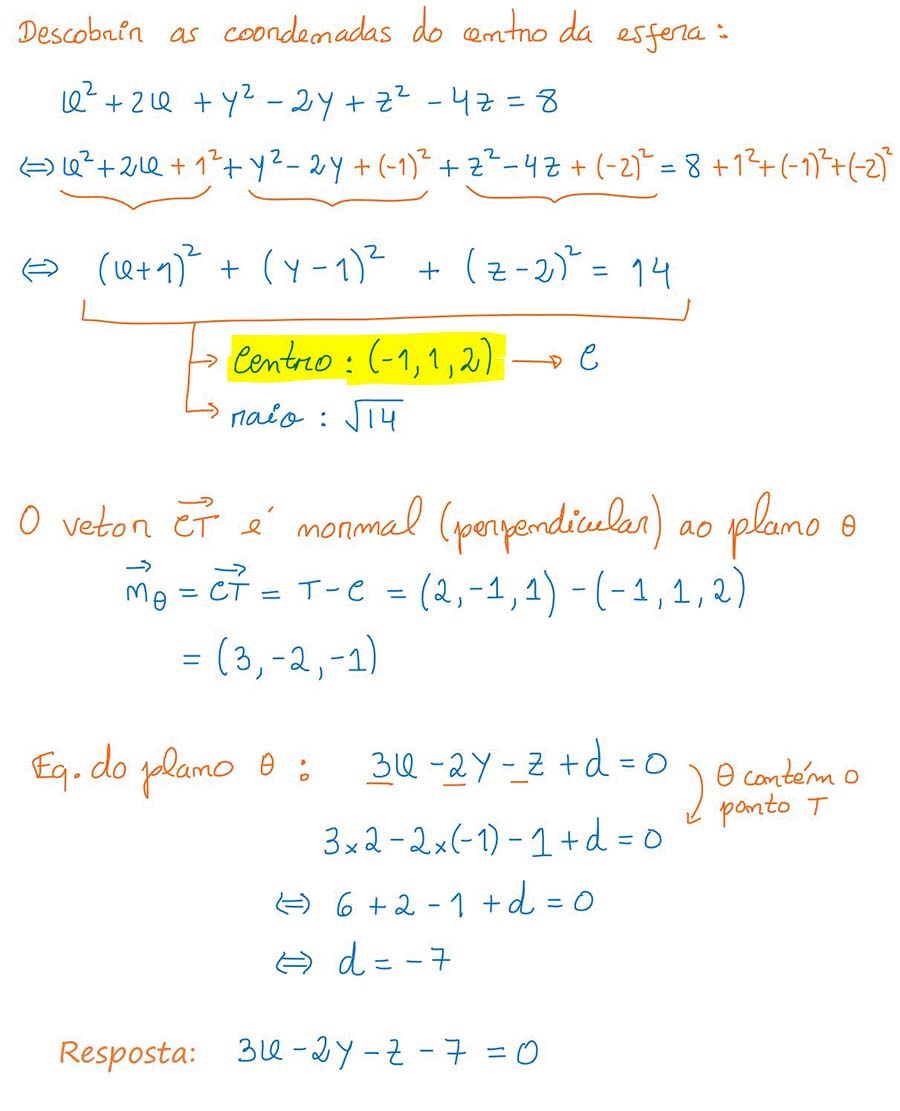 Descobrir as coordenadas do centro da esfera:
x² + 2x + y² - 2y + z² - 4z = 8
⇔ x² + 2x + 1² + y² - 2y + (-1)² + z² - 4z + (-2)² = 8 + 1² + (-1)² + (-2)²
⇔ (x+1)² + (y-1)² + (z-2)² = 14
→ Centro: (-1, 1, 2) → C
→ raio: √14
O vetor CT⃗ é normal (perpendicular) ao plano θ
n⃗θ = CT⃗ = T - C = (2, -1, 1) - (-1, 1, 2)
= (3, -2, -1)
Eq. do plano θ : 3x - 2y - z + d = 0
θ contém o
ponto T
3×2 - 2×(-1) - 1 + d = 0
⇔ 6 + 2 - 1 + d = 0
⇔ d = -7
Resposta: 3x - 2y - z - 7 = 0